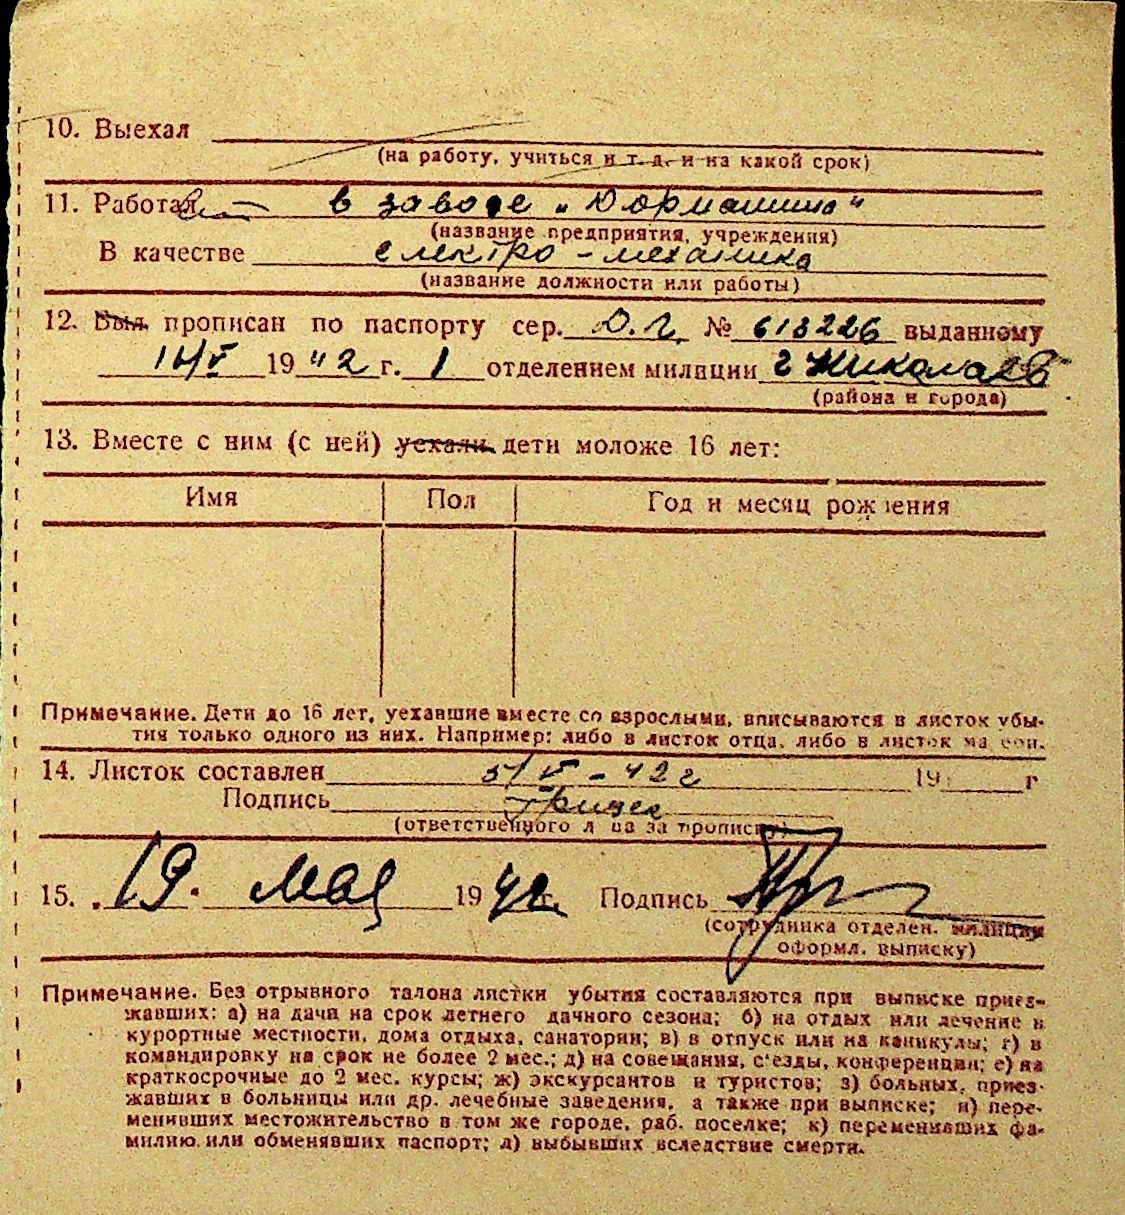 10. Выехал
(на работу, учиться и т. д. и на какой срок)
11. Работал в заводе „Дормашина"
(название предприятия, учреждения)
В качестве електро-механика
(название должности или работы)
12. Был прописан по паспорту сер. Д.Г. № 618226 выданному
14/V 1942 г. 1 отделением милиции г Николаев
(района и города)
13. Вместе с ним (с ней) уехали дети моложе 16 лет:
Имя Пол Год и месяц рождения
Примечание. Дети до 16 лет, уехавшие вместе со взрослыми, вписываются в листок убы-
тия только одного из них. Например: либо в листок отца, либо в листок матери.
14. Листок составлен 5/V-42 г 19 г
Подпись
(ответственного лица за прописку)
15. 19. Мая 1942 г. Подпись
(сотрудника отделен. милиции
оформл. выписку)
Примечание. Без отрывного талона листки убытия составляются при выписке приез-
жавших: а) на дачи на срок летнего дачного сезона; б) на отдых или лечение в
курортные местности, дома отдыха, санатории; в) в отпуск или на каникулы; г) в
командировку на срок не более 2 мес.; д) на совещания, с'езды, конференции; е) на
краткосрочные до 2 мес. курсы; ж) экскурсантов и туристов; з) больных, приез-
жавших в больницы или др. лечебные заведения, а также при выписке; и) пере-
менивших местожительство в том же городе, раб. поселке; к) переменивших фа-
милию или обменявших паспорт; л) выбывших вследствие смерти.